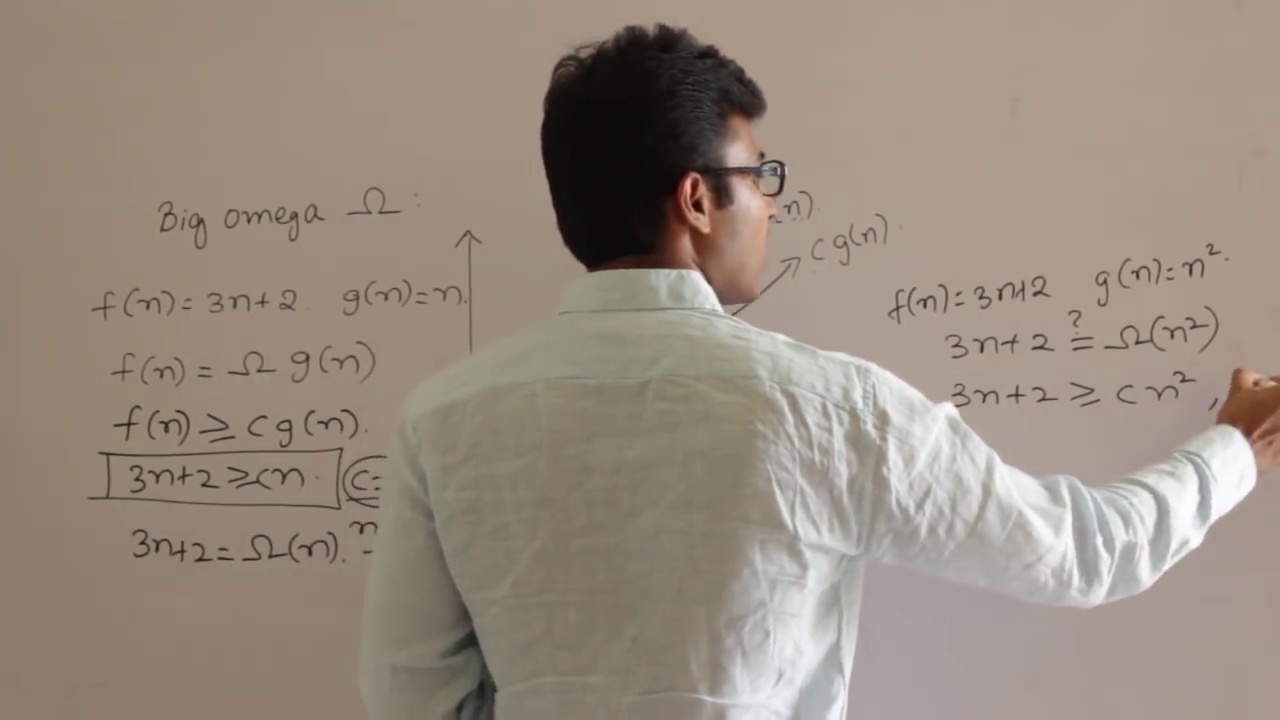 Big omega Ω :
f(n) = 3n+2. g(n) = n.
f(n) = Ω g(n)
f(n) ≥ c g(n).
3n+2 ≥ cn.
3n+2 = Ω(n).
n).
c g(n).
f(n) = 3n+2 g(n) = n².
?
3n+2 = Ω(n²)
3n+2 ≥ c n² ,